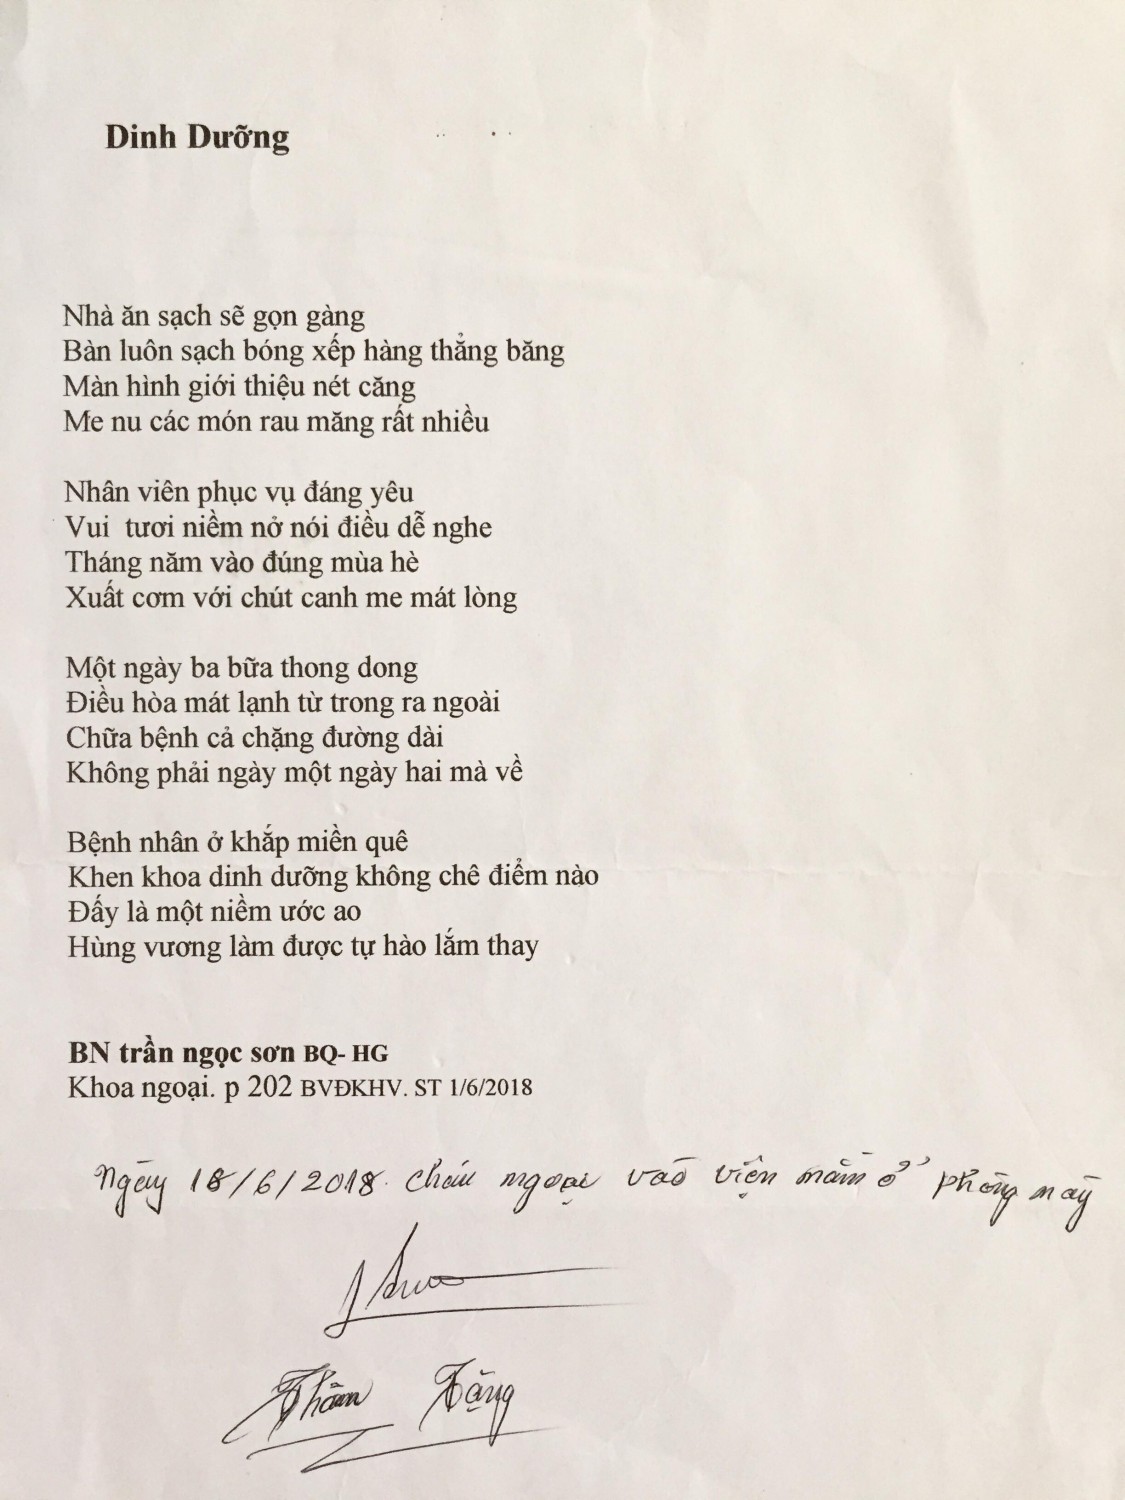 Dinh Dưỡng
Nhà ăn sạch sẽ gọn gàng
Bàn luôn sạch bóng xếp hàng thẳng băng
Màn hình giới thiệu nét căng
Me nu các món rau măng rất nhiều
Nhân viên phục vụ đáng yêu
Vui tươi niềm nở nói điều dễ nghe
Tháng năm vào đúng mùa hè
Xuất cơm với chút canh me mát lòng
Một ngày ba bữa thong dong
Điều hòa mát lạnh từ trong ra ngoài
Chữa bệnh cả chặng đường dài
Không phải ngày một ngày hai mà về
Bệnh nhân ở khắp miền quê
Khen khoa dinh dưỡng không chê điểm nào
Đấy là một niềm ước ao
Hùng vương làm được tự hào lắm thay
BN trần ngọc sơn BQ- HG
Khoa ngoại. p 202 BVĐKHV. ST 1/6/2018
Ngày 18/6/2018. cháu ngoại vào viện nằm ở phòng này
Thân Tặng